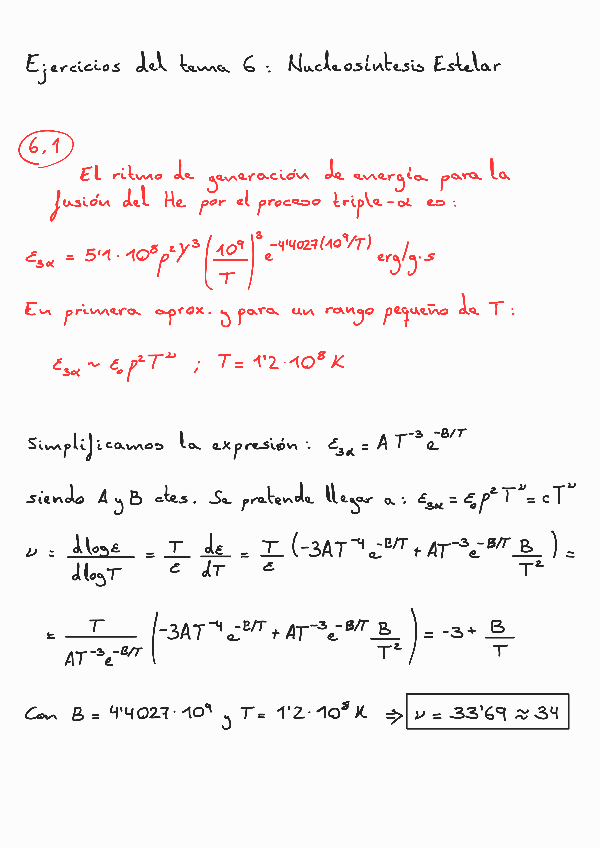 Ejercicios del tema 6 : Nucleosíntesis Estelar
6.1
El ritmo de generación de energía para la
fusión del He por el proceso triple-α es:
ε₃α = 5'1·10⁸ρ²Y³(10⁹/T)³e^(-4'4027(10⁹/T)) erg/g·s
En primera aprox. y para un rango pequeño de T:
ε₃α ~ ε₀ρ²T^ν ; T = 1'2·10⁸ K
Simplificamos la expresión: ε₃α = A T⁻³e^(-B/T)
siendo A y B ctes. Se pretende llegar a: ε₃α = ε₀ρ²T^ν = cT^ν
ν = dlogε/dlogT = T/ε dε/dT = T/ε (-3AT⁻⁴e^(-B/T) + AT⁻³e^(-B/T) B/T²) =
= T/(AT⁻³e^(-B/T)) (-3AT⁻⁴e^(-B/T) + AT⁻³e^(-B/T) B/T²) = -3 + B/T
Con B = 4'4027·10⁹ y T = 1'2·10⁸ K ⇒ ν = 33'69 ≈ 34